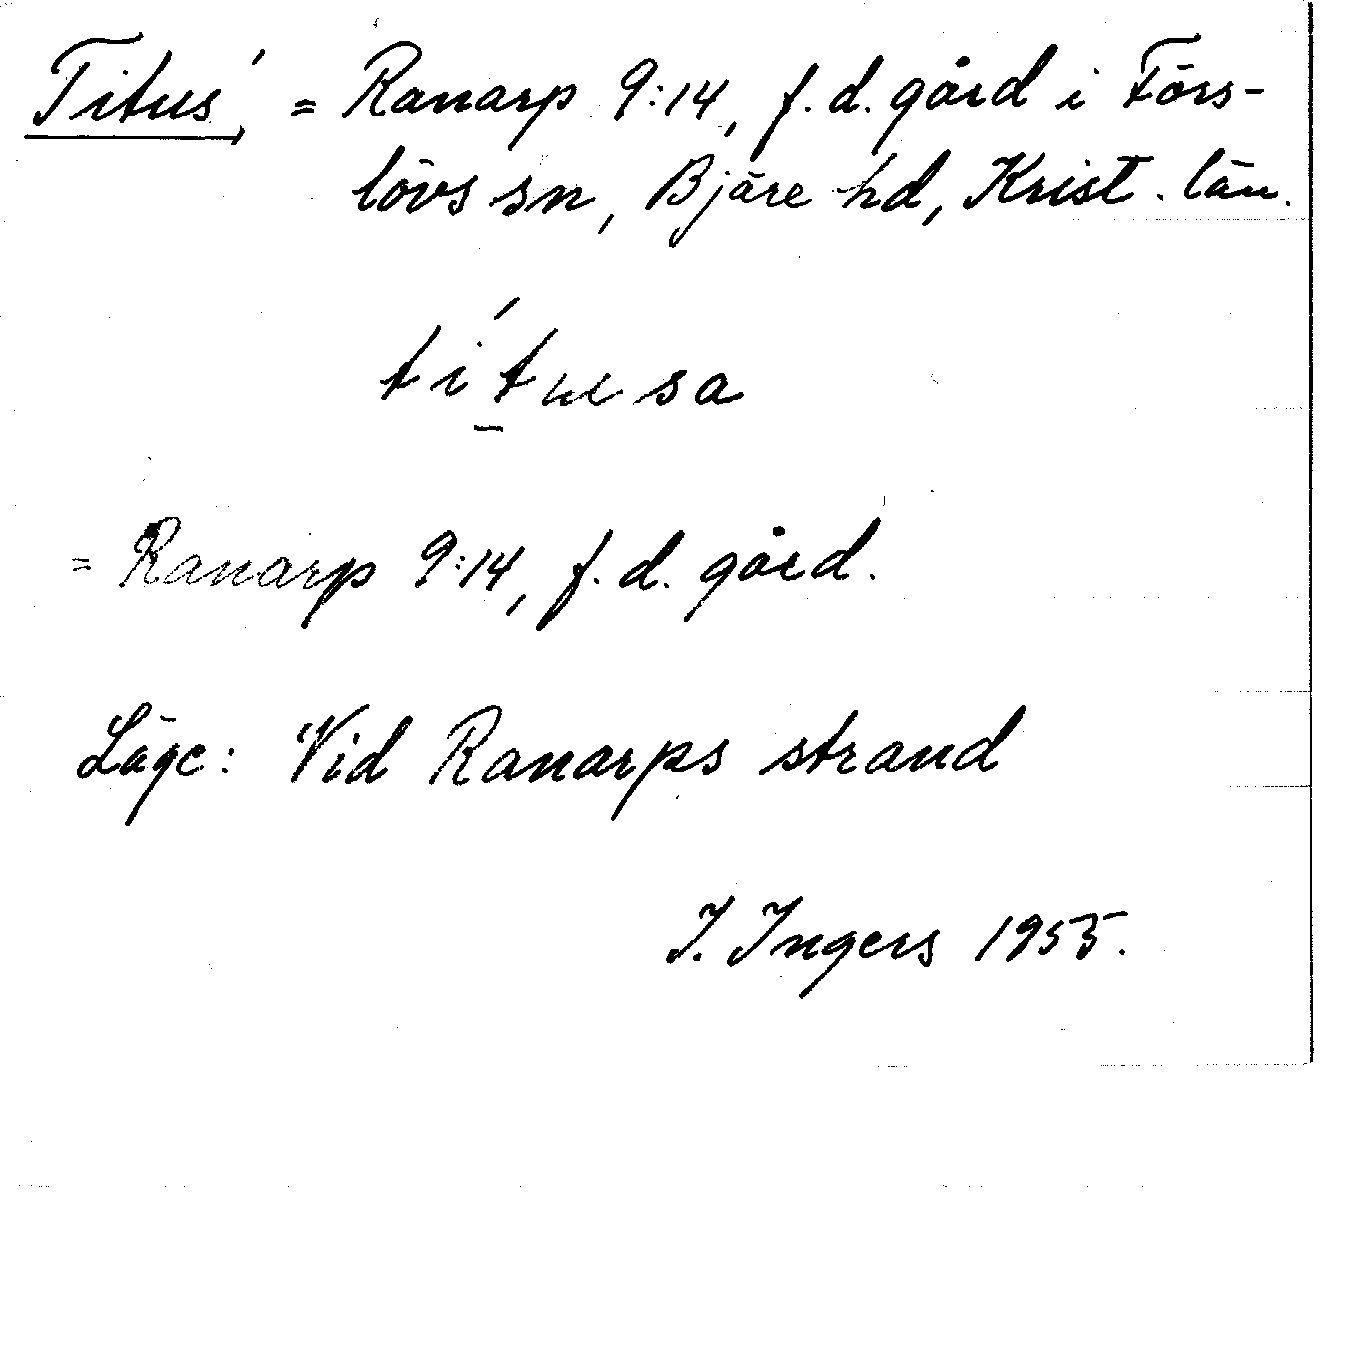 Titus', = Ranarp 9:14, f.d. gård i Förs-
lövs sn, Bjäre hd, Krist. län.
títusa
= Ranarp 9:14, f.d. gård.
Läge: Vid Ranarps strand
I. Ingers 1955.